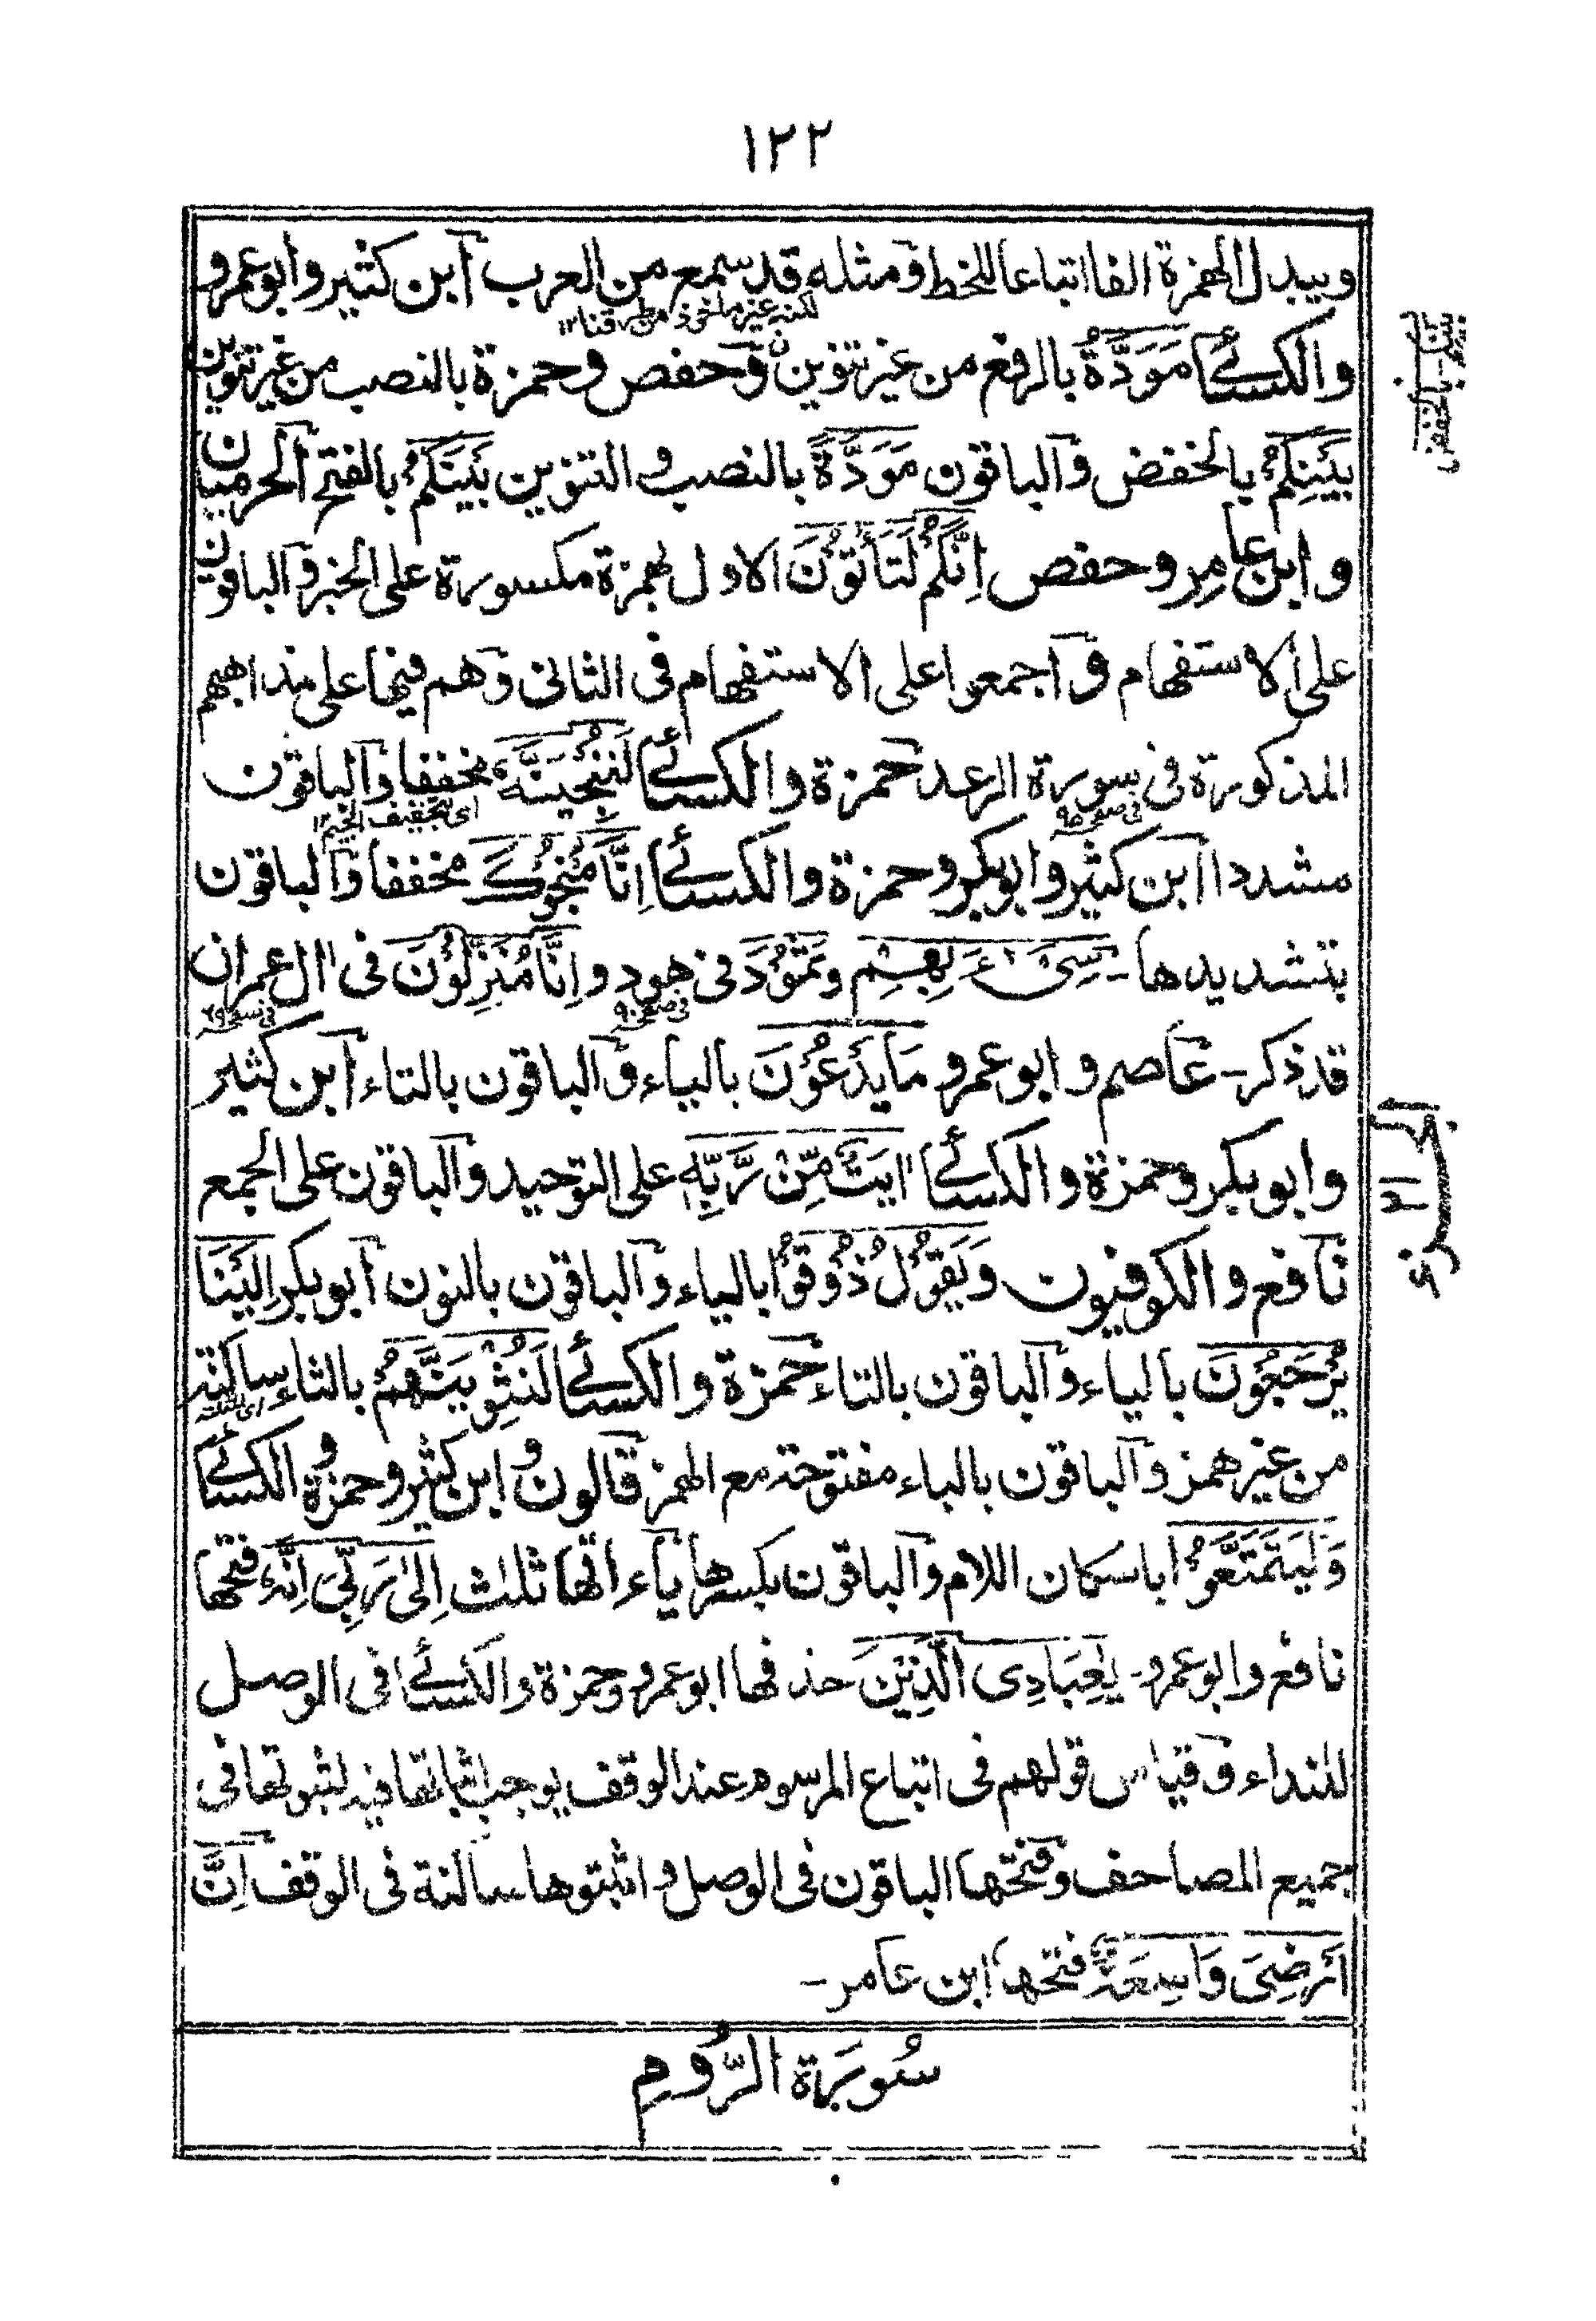 ١٢٢
ويبدل الهمزة الفا اتباعا للخط ومثله قد سمع من العرب ابن كثير وابو عمرو
لكنه غير ماخوذ من طرقنا ١٢
والكسائے مَوَدَّةُ بالرفع من غير تنوين وحفص وحمزة بالنصب من غير تنوين
بَيْنِكُمْ بالخفض والباقون مَوَدَّةً بالنصب والتنوين بَيْنَكُمْ بالفتح الحرميان
وابن عامر وحفص اِنَّكُمْ لَتَأْتُوْنَ الاول بهمزة مكسورة على الخبر والباقون
على الاستفهام واجمعوا على الاستفهام فى الثانى وهم فيها على مذاهبهم
المذكورة فى سورة الرعد حمزة والكسائے لَنُنْجِيَنَّهٗ مخففا والباقون
فى صفحه ٩٥
اى بتخفيف الجيم ١٢
مشددا ابن كثير وابوبكر وحمزة والكسائے اِنَّا مُنْجُوْكَ مخففا والباقون
بتشديدها - سِىْٓءَ بِهِمْ وثَمُوْدَ فى هود واِنَّا مُنَزِّلُوْنَ فى اٰل عمران
فى صفحه ٩٠
فى صفحه ٦٩
قد ذكر - عاصم وابو عمرو مَا يَدْعُوْنَ بالياء والباقون بالتاء ابن كثير
وابوبكر وحمزة والكسائے اٰيَتٌ مِّنْ رَّبِّهٖ على التوحيد والباقون على الجمع
نافع والكوفيون وَيَقُوْلُ ذُوْقُوْا بالياء والباقون بالنون ابوبكر اِلَيْنَا
يُرْجَعُوْنَ بالياء والباقون بالتاء حمزة والكسائے لَنُثْوِيَنَّهُمْ بالثاء ساكنة
اى المثلثة
من غير همز والباقون بالباء مفتوحة مع الهمز قالون وابن كثير وحمزة والكسائے
وَلْيَتَمَتَّعُوْا باسكان اللام والباقون بكسرها ياءاتها ثلٰث اِلٰى رَبِّىَ اِنَّهٗ فتحها
نافع وابو عمرو - يٰعِبَادِى الَّذِيْنَ حذفها ابو عمرو وحمزة والكسائے فى الوصل
للنداء وقياس قولهم فى اتباع المرسوم عند الوقف يوجب اثباتها فيه لثبوتها فى
جميع المصاحف وفتحها الباقون فى الوصل واثبتوها ساكنة فى الوقف اِنَّ
اَرْضِىَ وَاسِعَةٌ فتحها ابن عامر -
سُورَة الرُّومِ